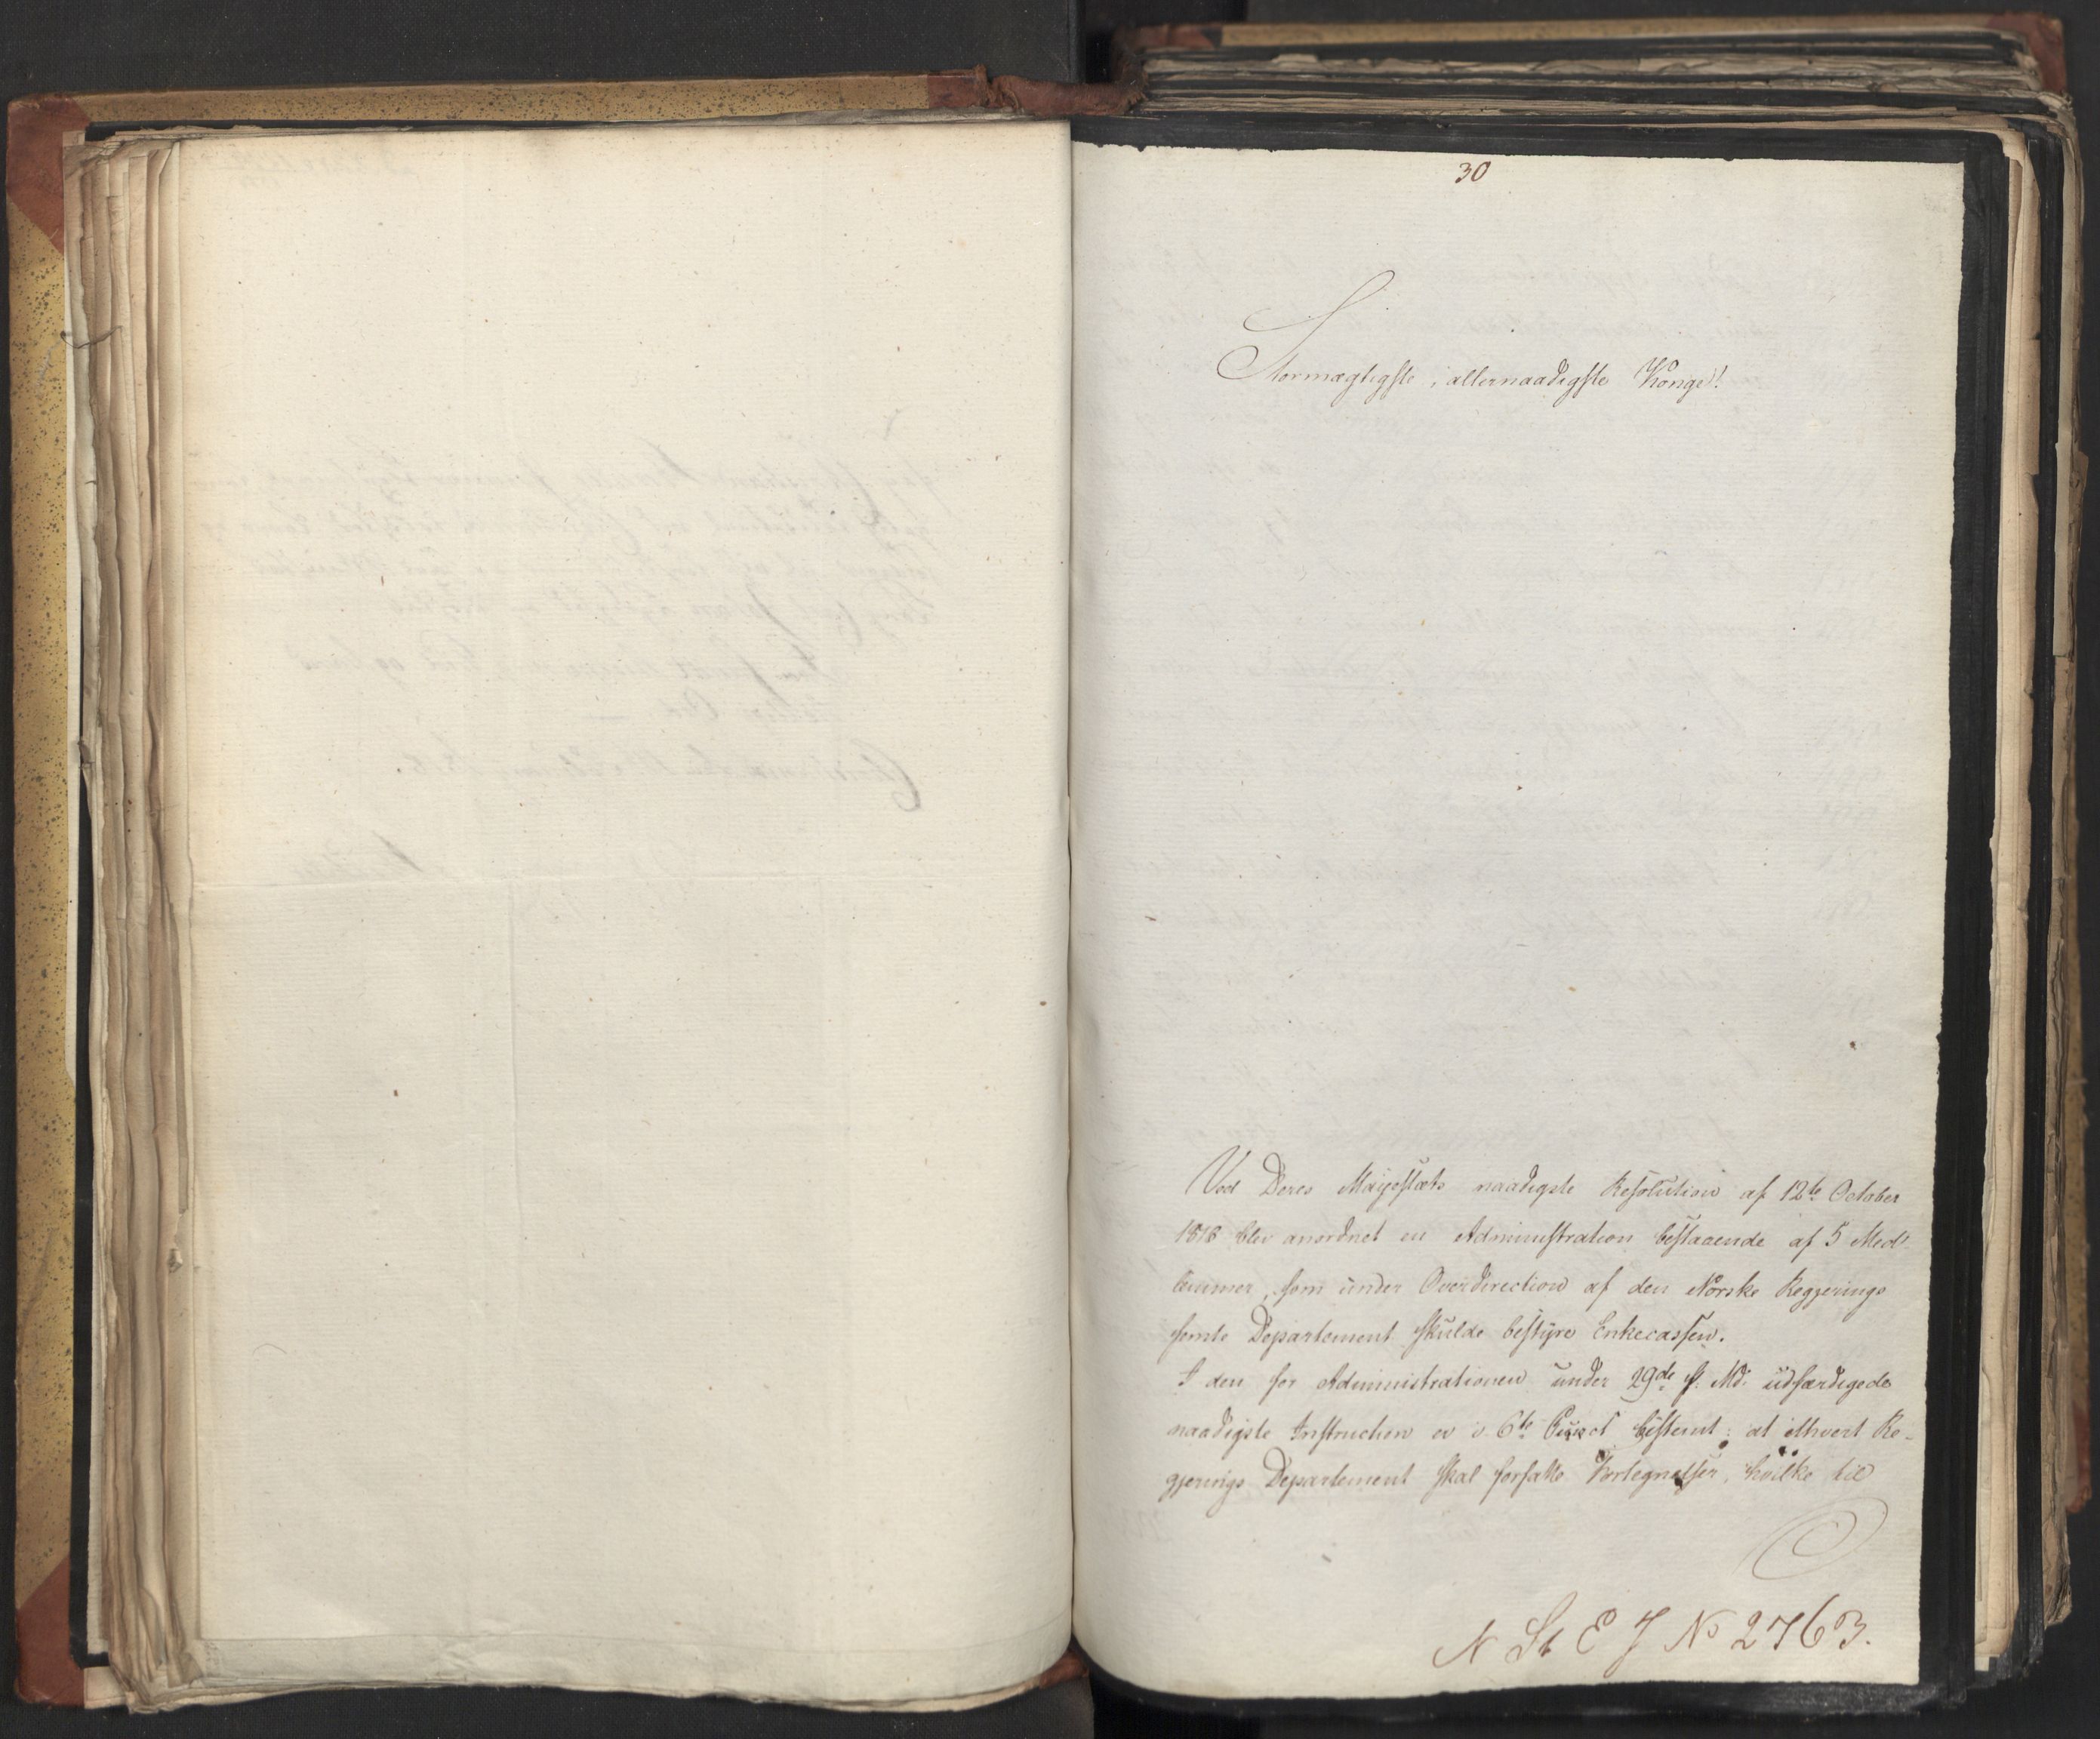 30
Stormægtigste, allernaadigste Konge!
Ved Deres Majestæts naadigste Resolution af 12te October
1818 blev anordnet en Administration bestaaende af 5 Med
lemmer, som under Overdirection af den Norske Regjerings
femte Departement skulde bestyre Enkecassen.
I den for Administrationen under 29de s. Md. udfærdigede
naadigste Instruction er i 6te Punct bestemt: at ethvert Re-
gjerings Departement skal forfatte Fortegnelser, hvilke til
N St E J No 2763.